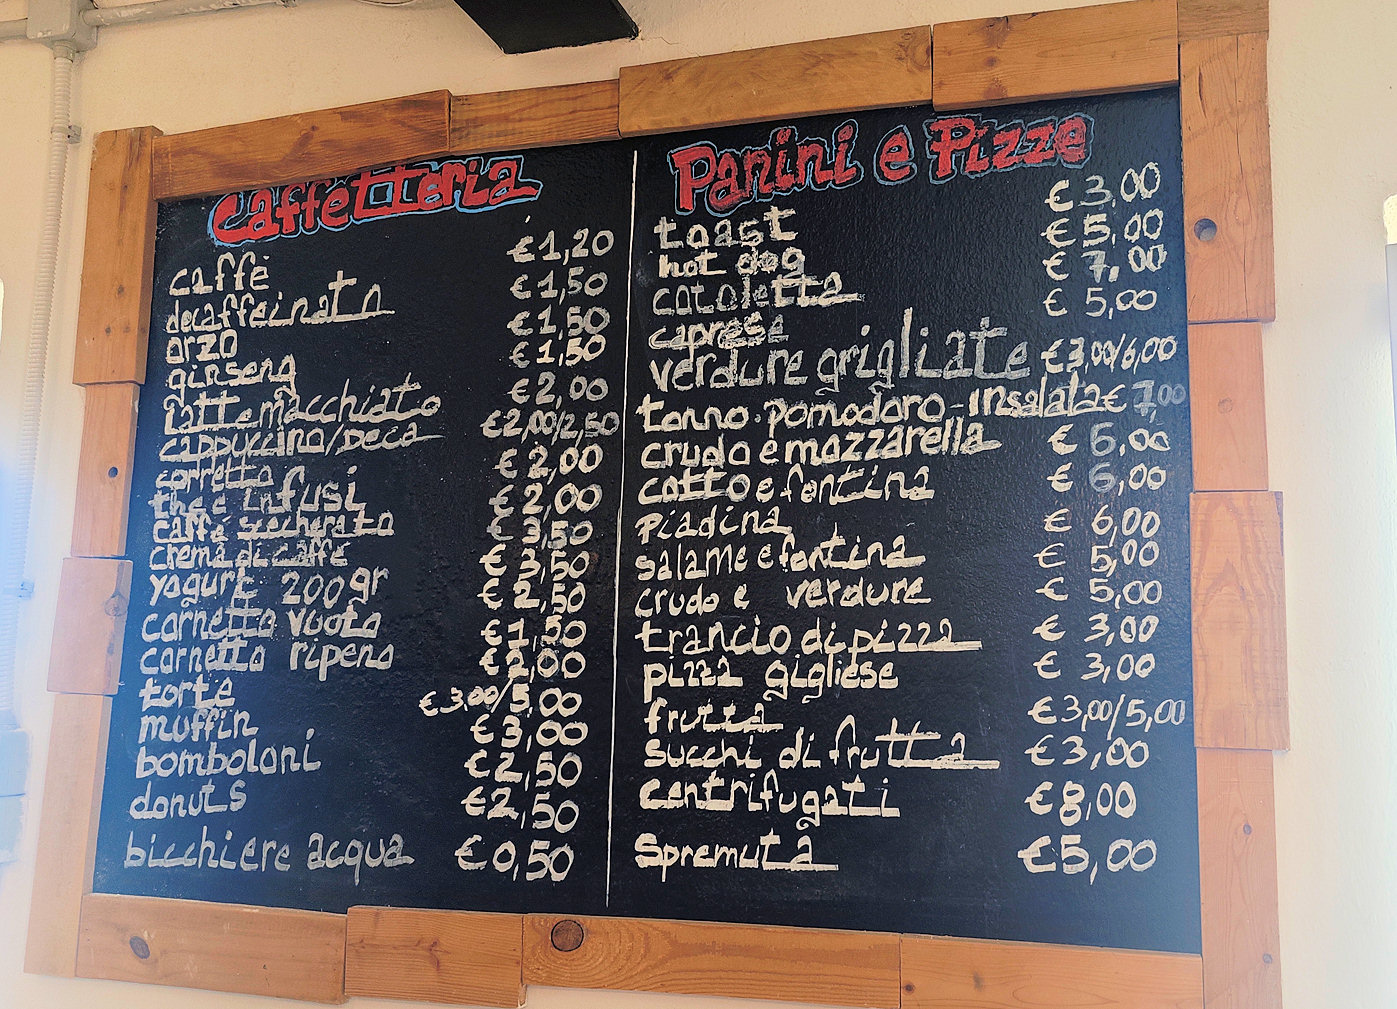 Caffetteria
caffè € 1,20
decaffeinato € 1,50
orzo € 1,50
ginseng € 1,50
latte macchiato € 2,00
cappuccino/Deca €2,00/2,50
corretto € 2,00
the e infusi € 2,00
caffè scecherato € 3,50
crema di caffè € 3,50
yogurt 200gr € 2,50
cornetto vuoto €1,50
cornetto ripeno €2,00
torte €3,00/5,00
muffin € 3,00
bomboloni €2,50
donuts €2,50
bicchiere acqua € 0,50
Panini e Pizze
toast € 3,00
hot dog € 5,00
cotoletta € 7,00
caprese € 5,00
verdure grigliate €3,00/6,00
tonno-pomodoro-insalata € 7,00
crudo e mozzarella € 6,00
cotto e fontina € 6,00
Piadina € 6,00
salame e fontina € 5,00
crudo e verdure € 5,00
trancio di pizza € 3,00
pizza gigliese € 3,00
frutta €3,00/5,00
succhi di frutta €3,00
centrifugati €8,00
Spremuta €5,00